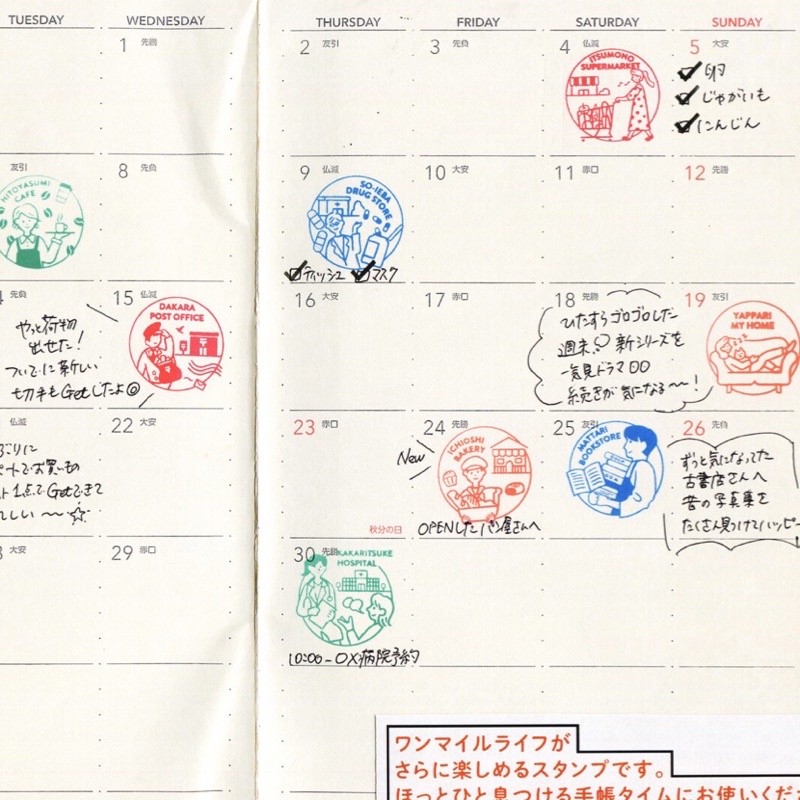 TUESDAY
WEDNESDAY
THURSDAY
FRIDAY
SATURDAY
SUNDAY
1 先勝
2 友引
3 先負
4 仏滅
ITSUMONO
SUPERMARKET
5 大安
卵
じゃがいも
にんじん
友引
HITOYASUMI
CAFE
8 先負
9 仏滅
SO-IEBA
DRUG STORE
ティッシュ マスク
10 大安
11 赤口
12 先勝
先負
やっと荷物
出せた!
ついでに新しい
切手もGetしたよ
15 仏滅
DAKARA
POST OFFICE
16 大安
17 赤口
18 先勝
ひたすらゴロゴロした
週末 新シリーズを
一気見ドラマ
続きが気になる〜!
19 友引
YAPPARI
MY HOME
仏滅
ぶりに
ートでお買いもの
ト1点でGetできて
れしい〜☆
22 大安
23 赤口
秋分の日
24 先勝
New
ICHIOSHI
BAKERY
OPENしたパン屋さんへ
25 友引
MATTARI
BOOKSTORE
26 先負
ずっと気になってた
古書店さんへ
昔の写真集を
たくさん見つけてハッピー
大安
29 赤口
30 先勝
KAKARITSUKE
HOSPITAL
10:00-○×病院予約
ワンマイルライフが
さらに楽しめるスタンプです。
ほっとひと息つける手帳タイムにお使いくだ